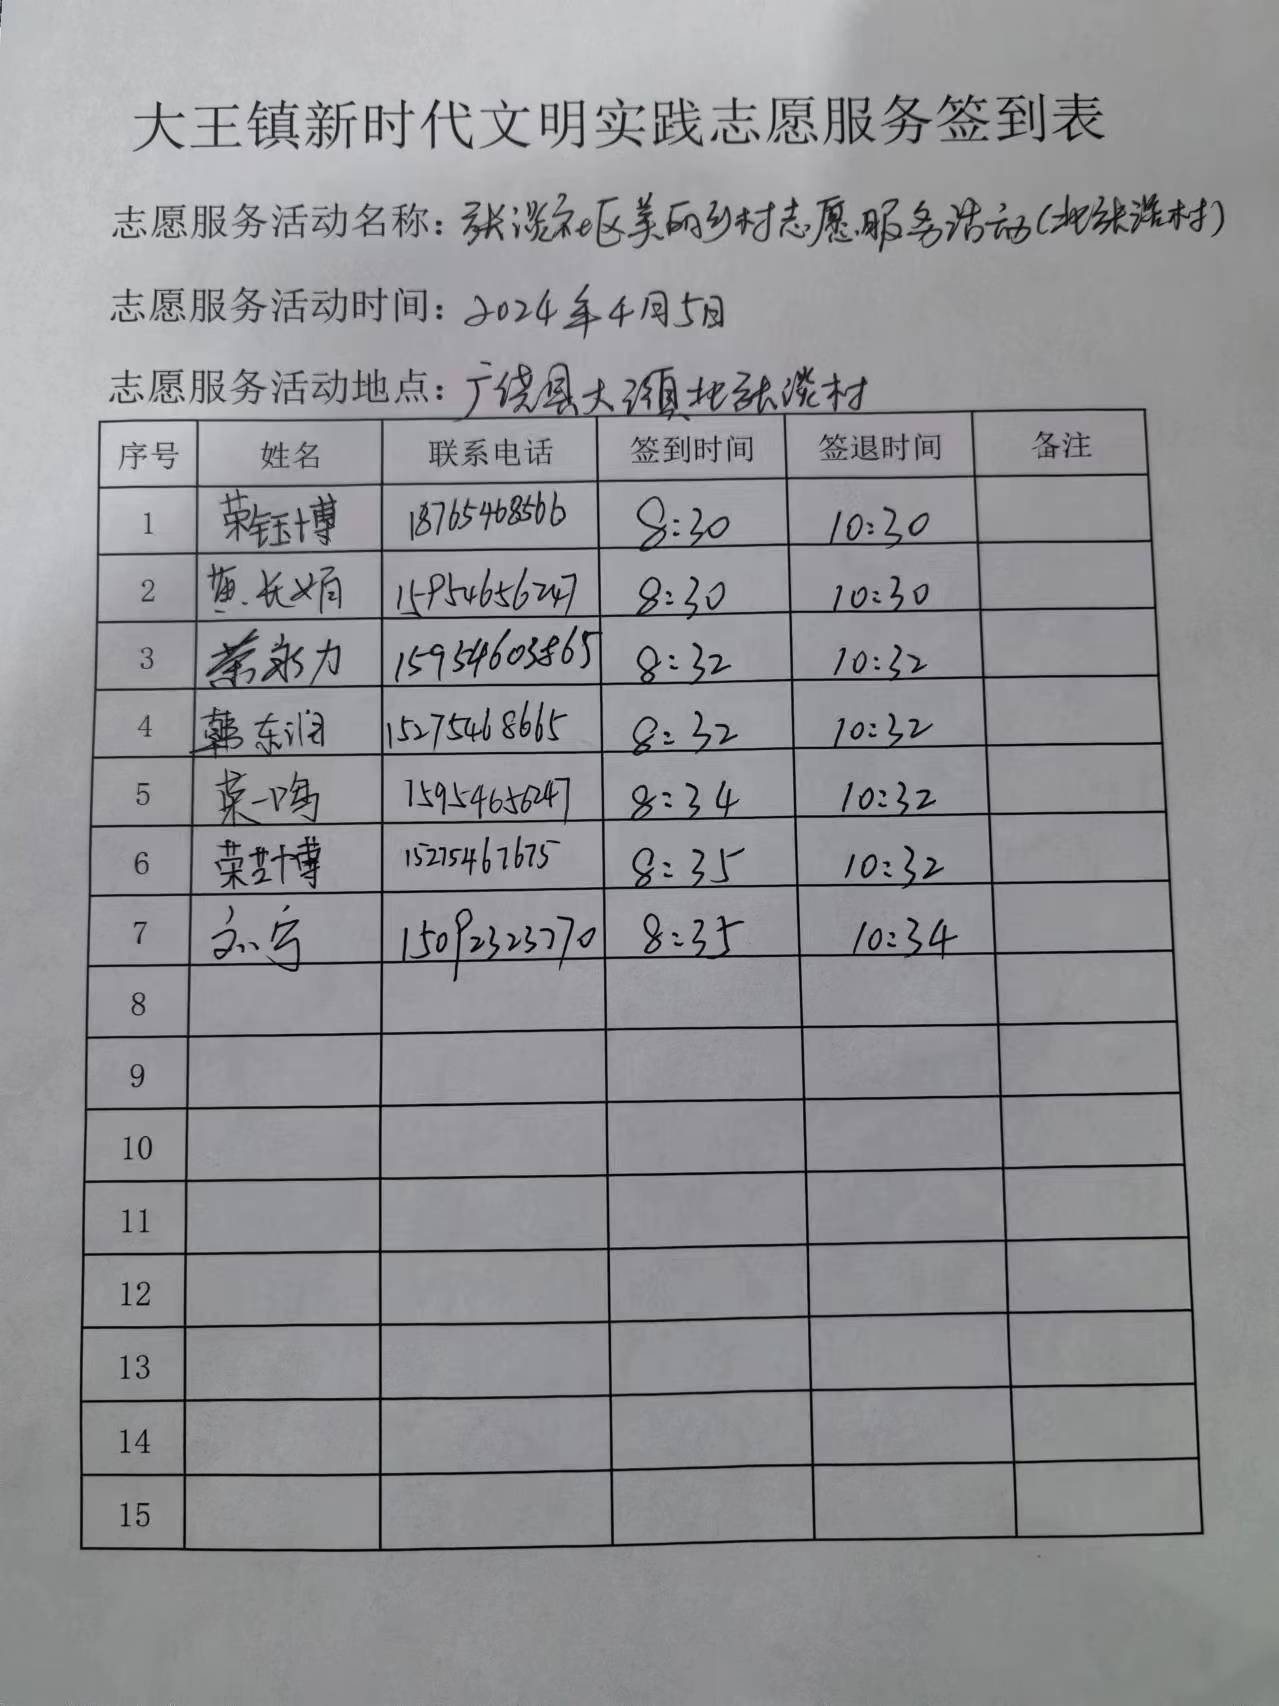 大王镇新时代文明实践志愿服务签到表
志愿服务活动名称：张淡社区美丽乡村志愿服务活动(北张淡村)
志愿服务活动时间：2024年4月5日
志愿服务活动地点：广饶县大镇北张淡村
序号 姓名 联系电话 签到时间 签退时间 备注
1 荣钰博 18765468566 8:30 10:30
2 黄长娟 15954656247 8:30 10:30
3 荣永力 15954603865 8:32 10:32
4 韩东润 15275468665 8:32 10:32
5 荣一鸣 15954656247 8:34 10:32
6 荣堃博 15275467675 8:35 10:32
7 刘宁 15092323770 8:35 10:34
8
9
10
11
12
13
14
15